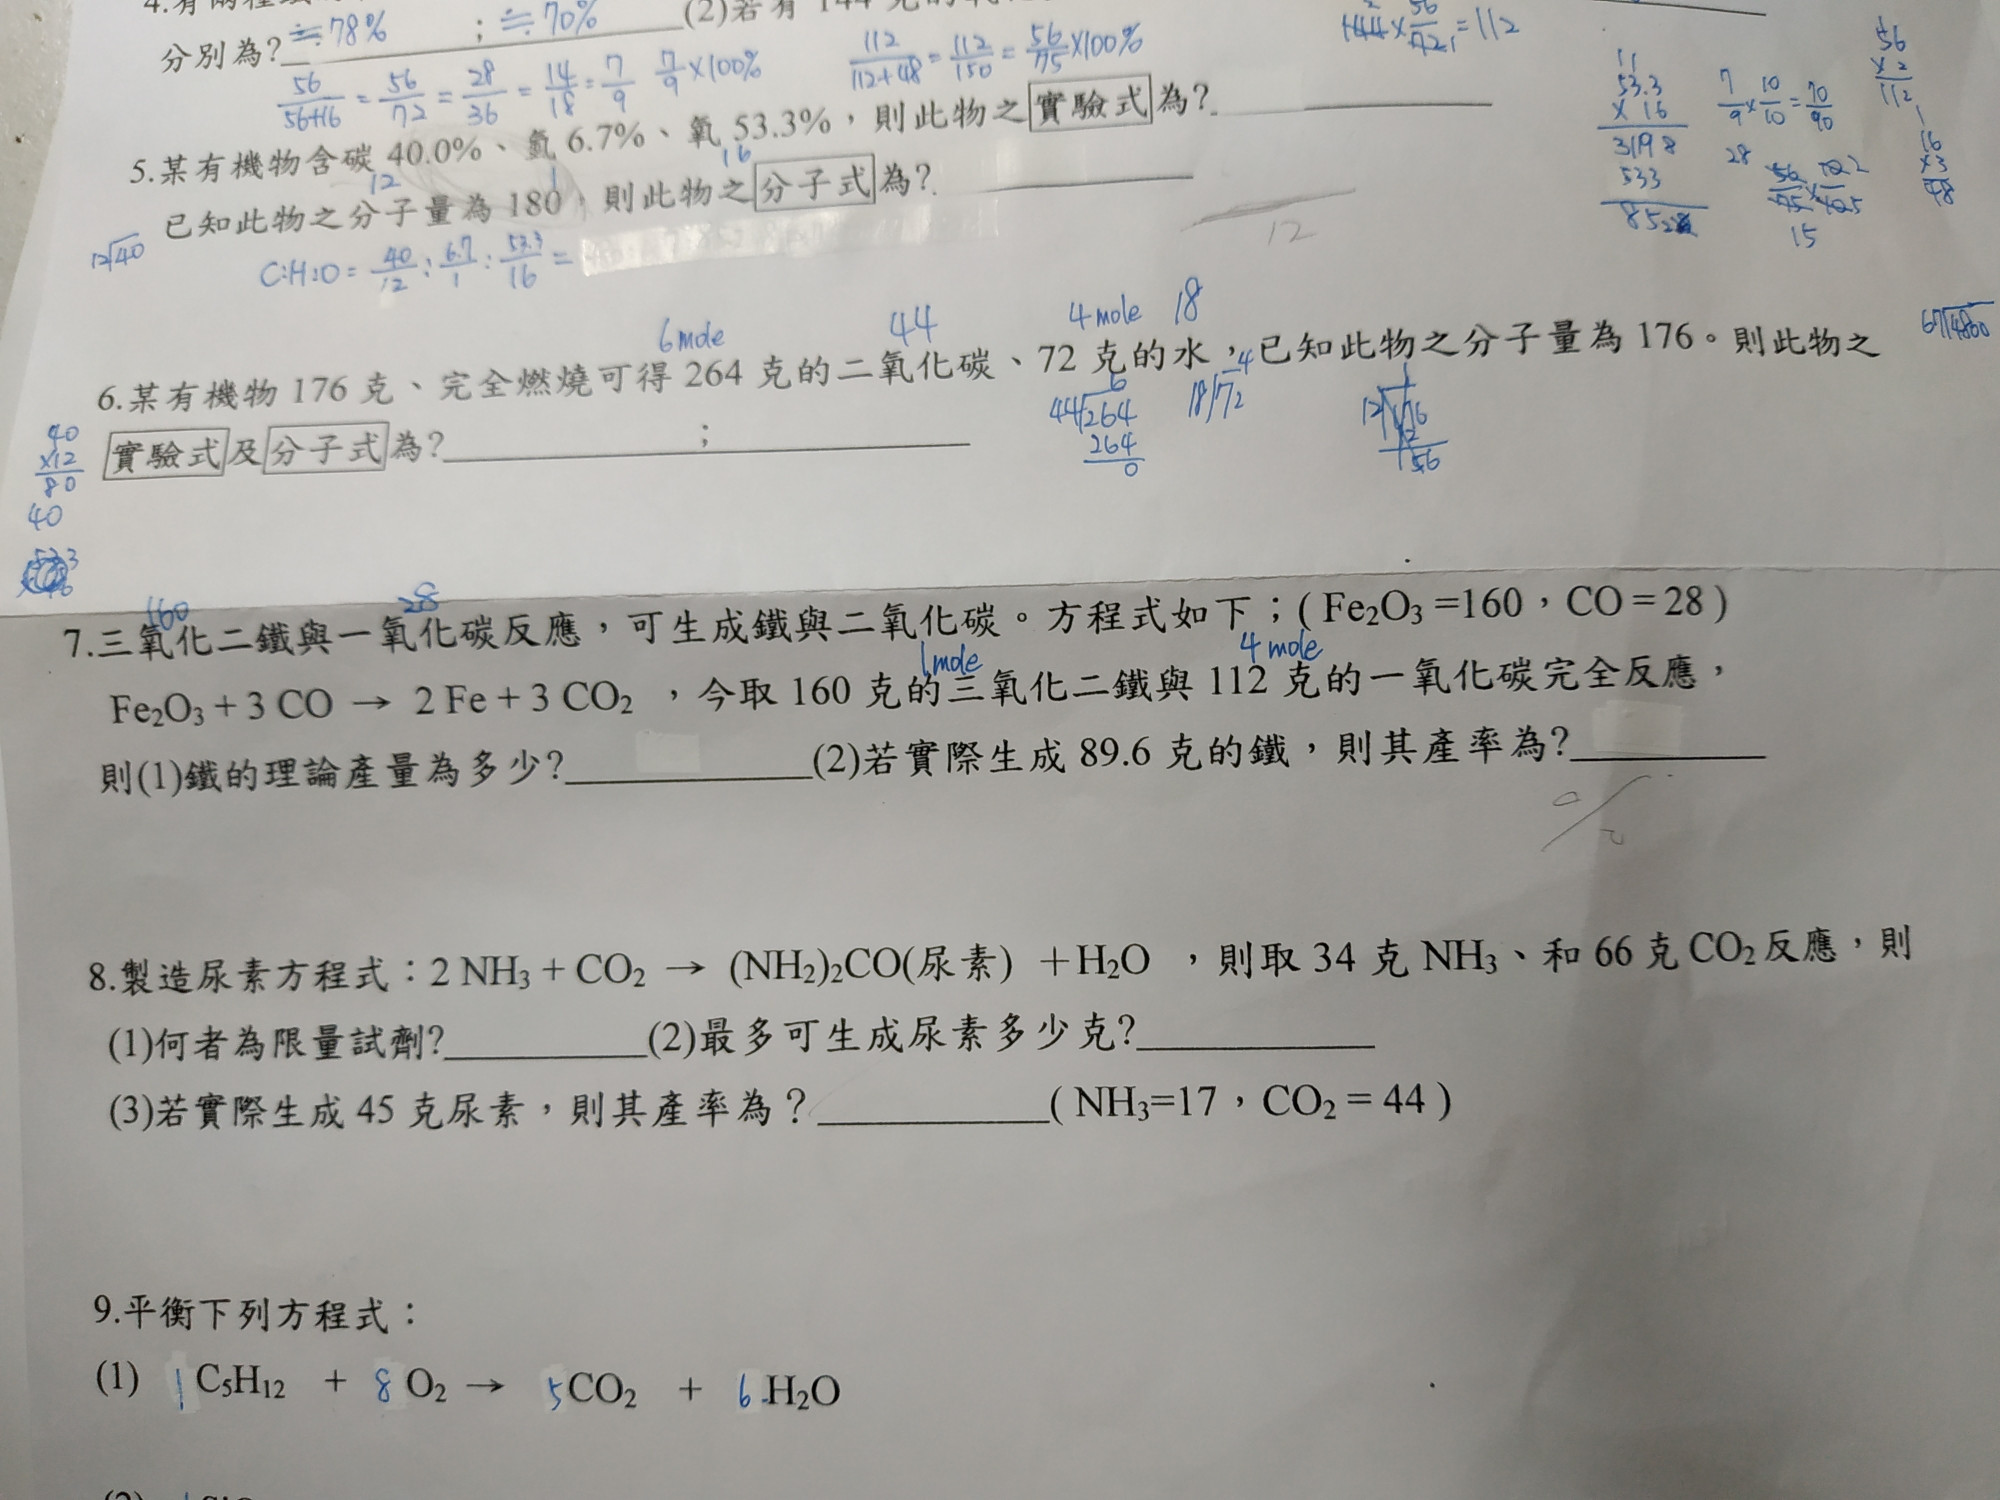 分別為? ≒78% ; ≒70% (2)若有 144
56/56+16 = 56/72 = 28/36 = 14/18 = 7/9 7/9×100% 112/112+48 = 112/150 = 56/75×100%
144×56/72=112
5.某有機物含碳 40.0%、氫 6.7%、氧 53.3%,則此物之實驗式為?
12 1 16
已知此物之分子量為 180,則此物之分子式為?
C:H:O= 40/12 : 6.7/1 : 53.3/16 =
12
53.3
× 16
3198
533
7/9×10/10=70/90
28
15
56
×2
112
16
×3
48
6mole 44 4mole 18
6.某有機物 176 克、完全燃燒可得 264 克的二氧化碳、72 克的水,已知此物之分子量為 176。則此物之
實驗式及分子式為? ;
6
44√264
264
0
4
18√72
12√176
12
56
67√4800
12√40
40
×12
80
40
160 28
7.三氧化二鐵與一氧化碳反應,可生成鐵與二氧化碳。方程式如下;( Fe₂O₃ =160,CO = 28 )
1mole 4 mole
Fe₂O₃ + 3 CO → 2 Fe + 3 CO₂ ,今取 160 克的三氧化二鐵與 112 克的一氧化碳完全反應,
則(1)鐵的理論產量為多少? (2)若實際生成 89.6 克的鐵,則其產率為?
8.製造尿素方程式:2 NH₃ + CO₂ → (NH₂)₂CO(尿素) +H₂O ,則取 34 克 NH₃、和 66 克 CO₂ 反應,則
(1)何者為限量試劑? (2)最多可生成尿素多少克?
(3)若實際生成 45 克尿素,則其產率為? ( NH₃=17,CO₂ = 44 )
9.平衡下列方程式:
(1) 1 C₅H₁₂ + 8 O₂ → 5 CO₂ + 6 H₂O